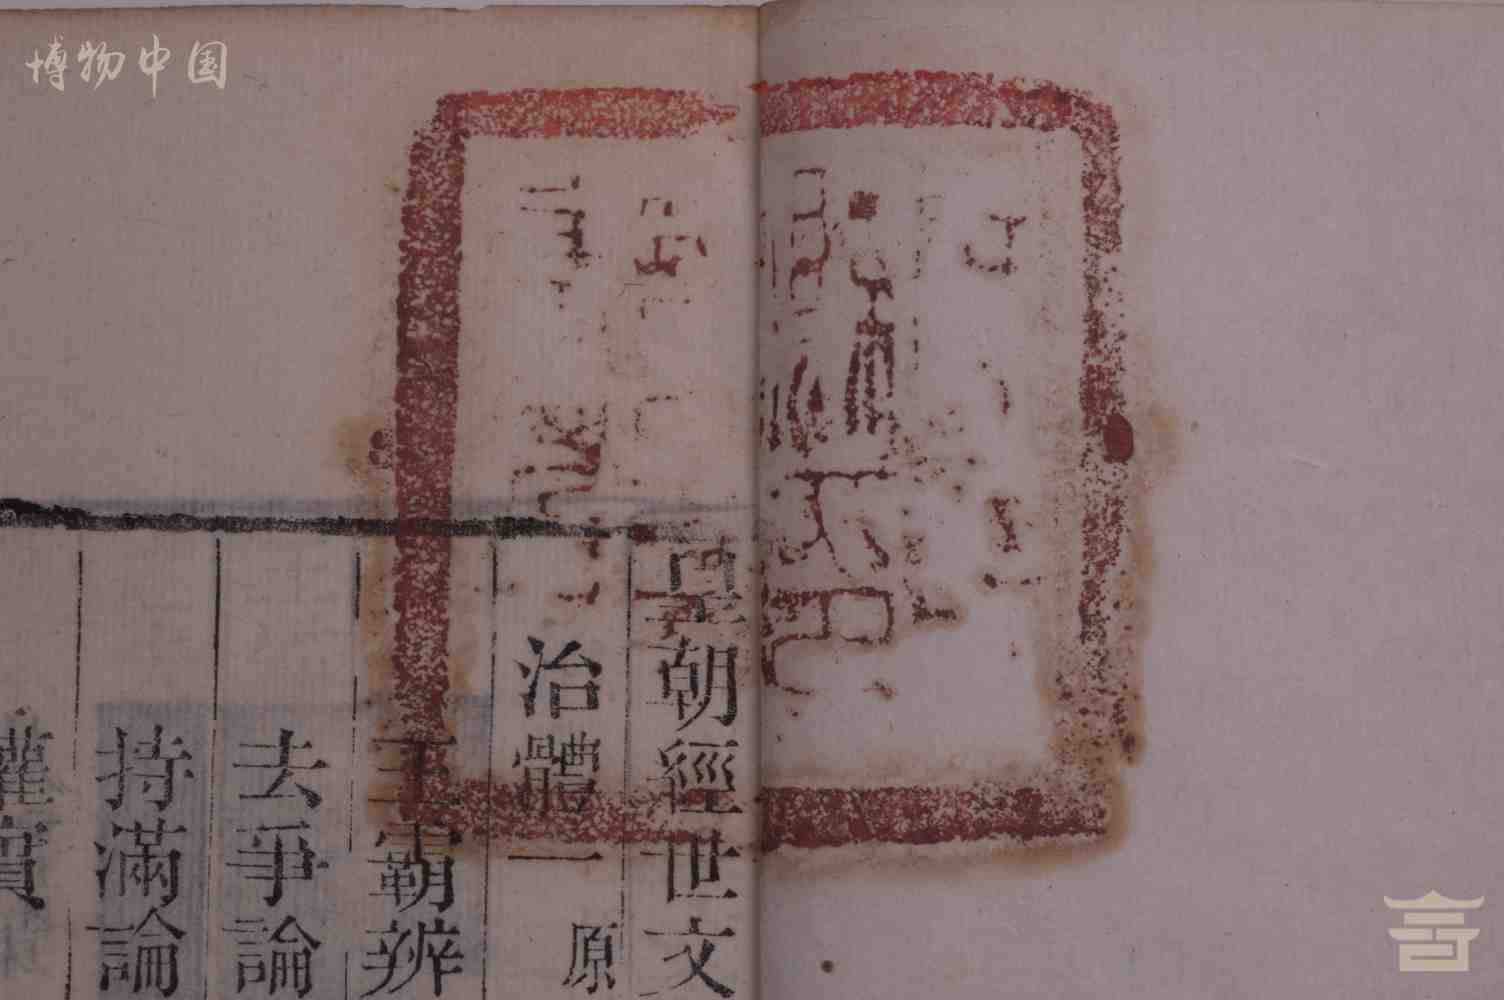 博物中国
皇朝經世文
治體一 原
王霸辨
去爭論
持滿論
權實